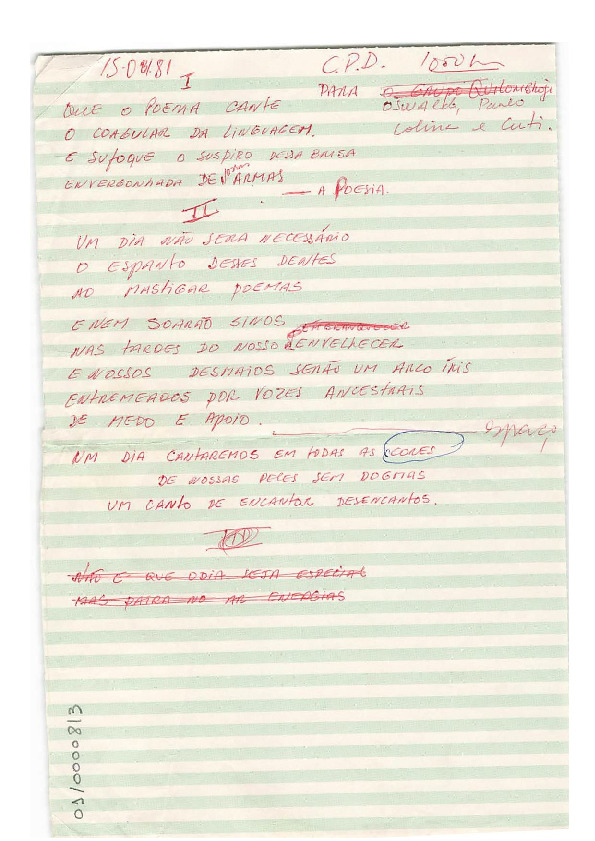 15-04.81 C.P.D. 10:50 h
I
PARA O GRUPO Quilombhoje
OSWALDO, Paulo
Colina e Cuti.
QUE O POEMA CANTE
O COAGULAR DA LINGUAGEM.
E SUFOQUE O SUSPIRO DESSA BRISA
ENVERGONHADA DE ARMAS
— A POESIA.
II
UM DIA NÃO SERA NECESSÁRIO
O ESPANTO DESSES DENTES
AO MASTIGAR POEMAS
E NEM SOARÃO SINOS
NAS TARDES DO NOSSO ENVELHECER
E NOSSOS DESMAIOS SERÃO UM ARCO ÍRIS
ENTREMEADOS POR VOZES ANCESTRAIS
DE MEDO E APOIO. espaço
UM DIA CANTAREMOS EM TODAS AS CORES
DE NOSSAS PELES SEM DOGMAS
UM CANTO DE ENCANTOR DESENCANTOS.
III
NÃO E QUE O DIA SEJA ESPECIAL
MAS PAIRA NO AR ENERGIAS
OS/0000813